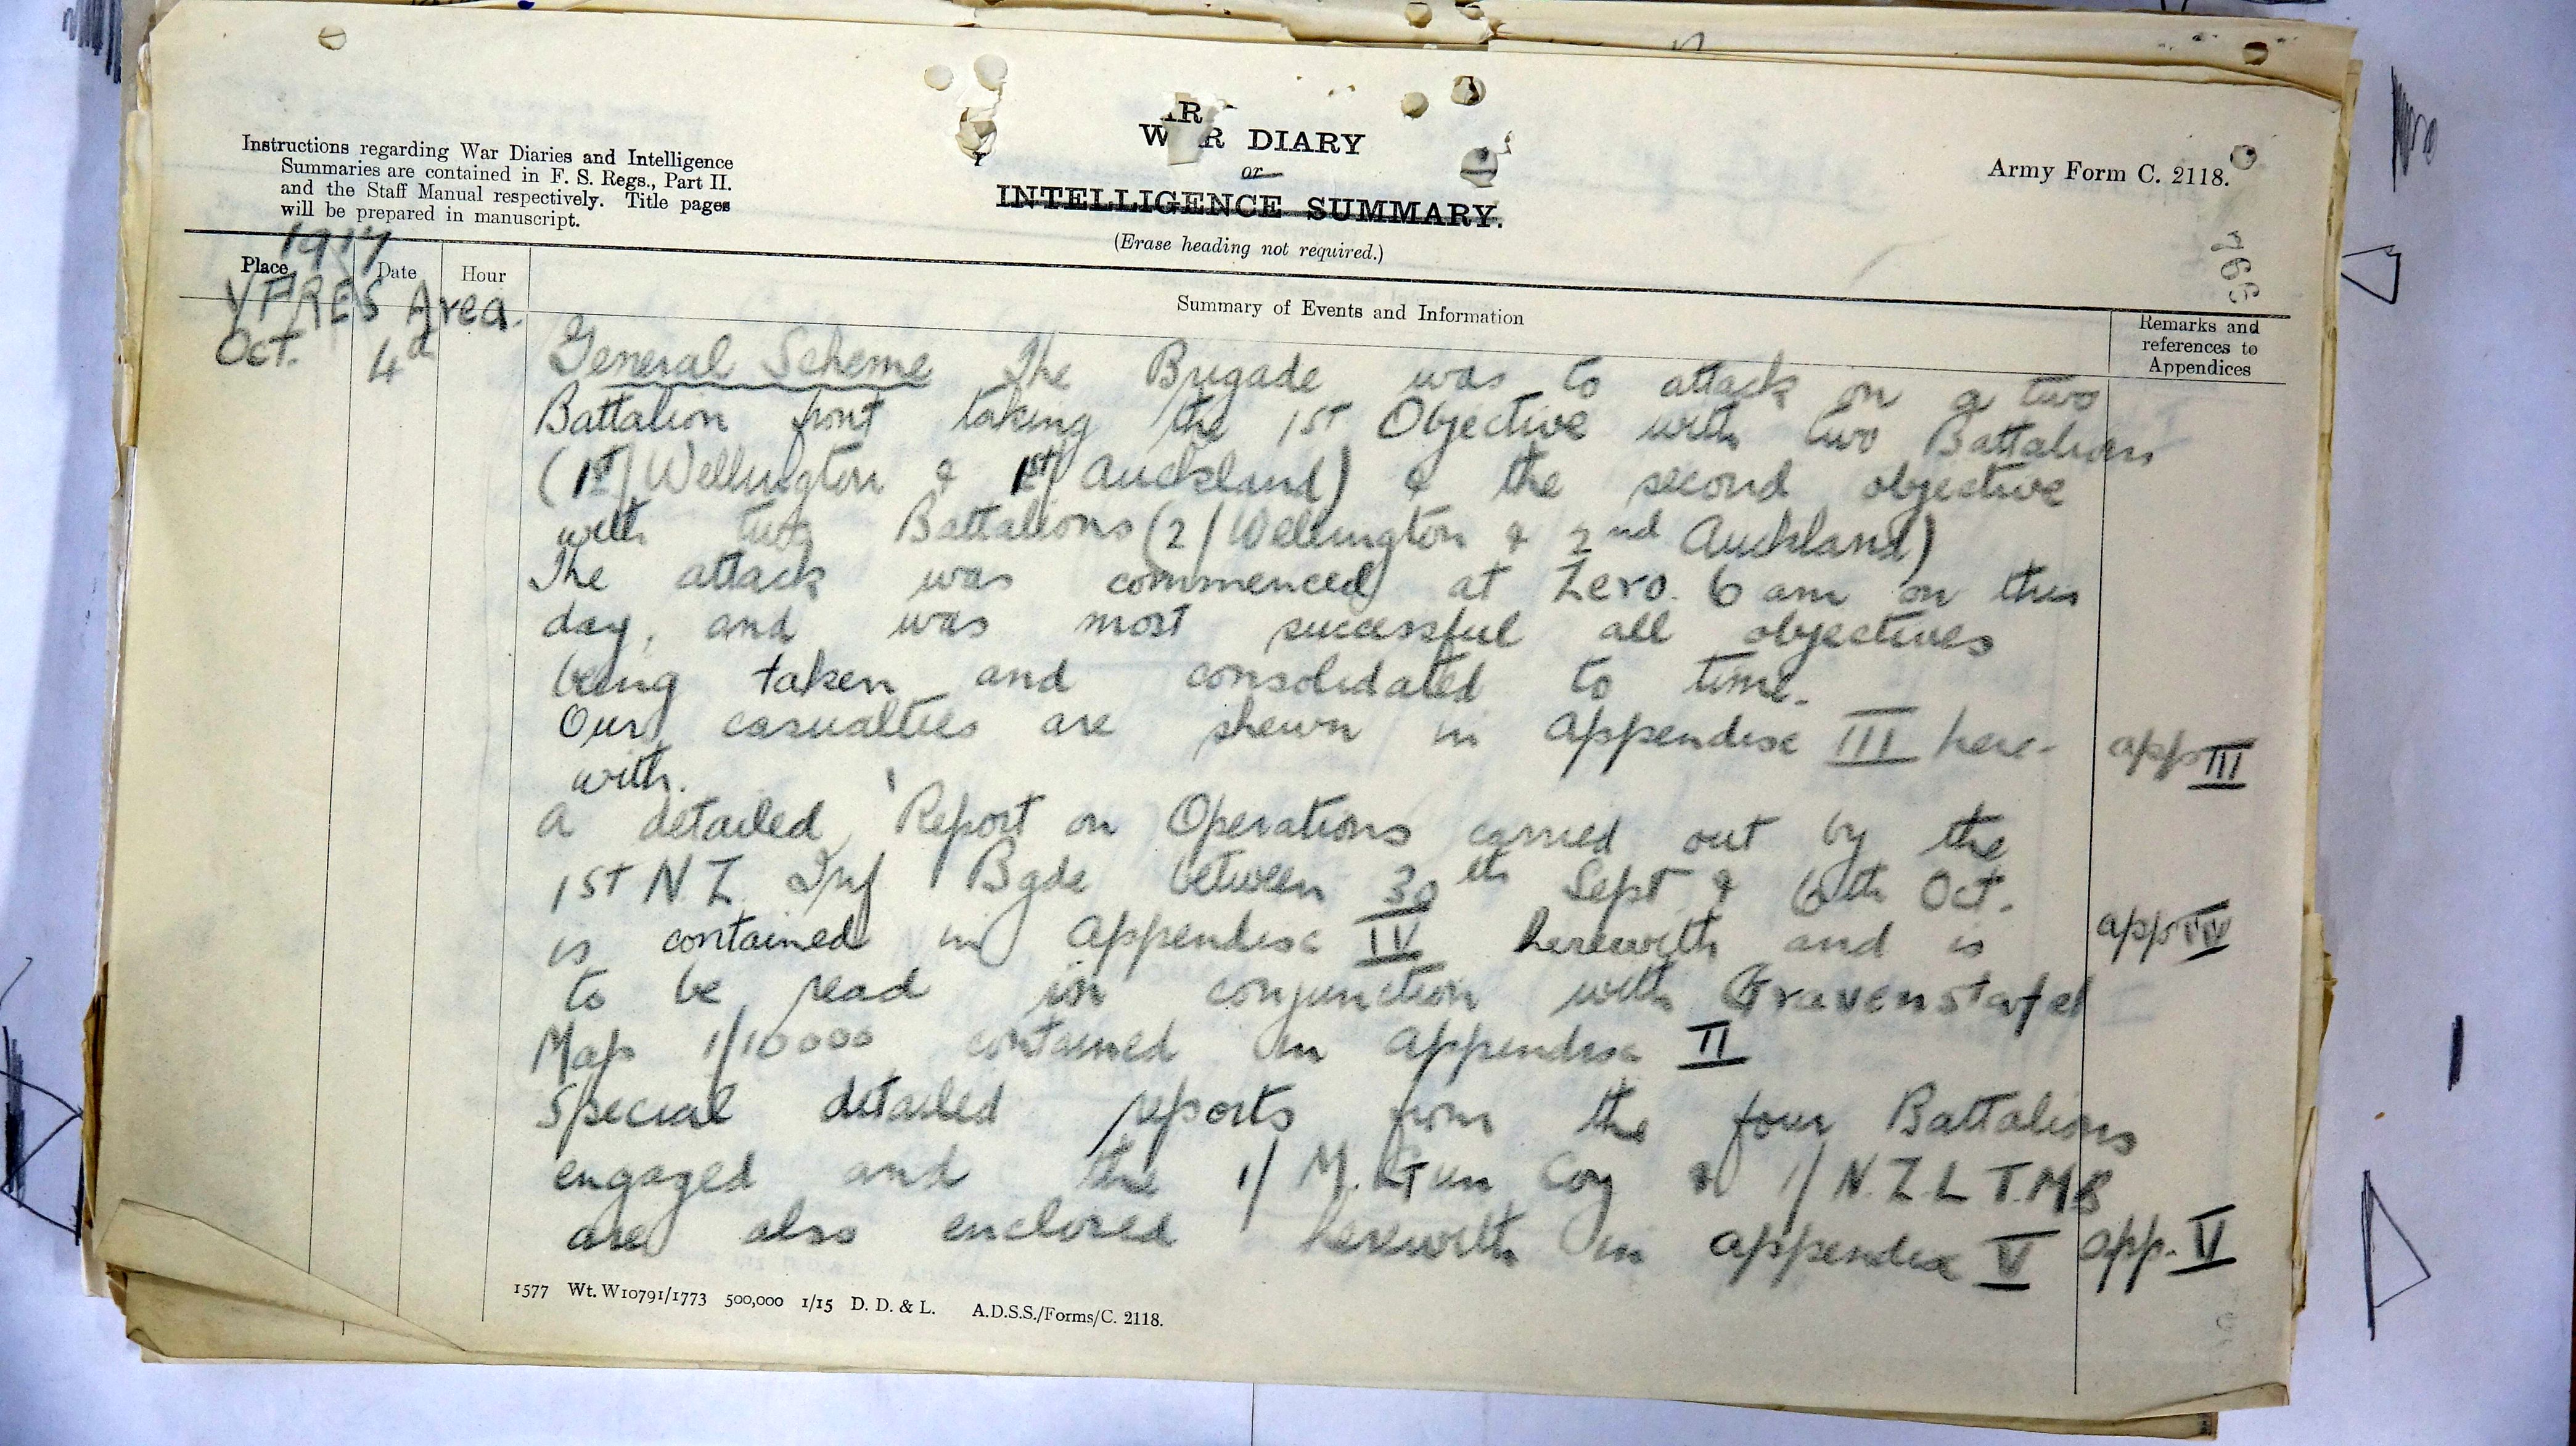 WAR DIARY
or
INTELLIGENCE SUMMARY.
(Erase heading not required.)
Instructions regarding War Diaries and Intelligence
Summaries are contained in F. S. Regs., Part II.
and the Staff Manual respectively. Title pages
will be prepared in manuscript.
Army Form C. 2118.
766
1917
Place Date Hour
Summary of Events and Information
Remarks and
references to
Appendices
YPRES Area.
Oct. 4th
General Scheme The Brigade was to attack on a two
Battalion front taking the 1st Objective with two Battalions
(1st/Wellington & 1st/Auckland) & the second objective
with two Battalions (2/Wellington & 2nd Auckland)
The attack was commenced at Zero. 6 am on this
day, and was most successful all objectives
being taken and consolidated to time.
Our casualties are shewn in appendix III here- app III
with.
A detailed 'Report on Operations carried out by the
1st N.Z. Inf Bgde between 30th Sept & 6th Oct.
is contained in appendix IV herewith and is app IV
to be read in conjunction with Gravenstafel
Map 1/10000 contained in appendix II
Special detailed reports from the four Battalions
engaged and the 1/ M. Gun Coy & 1/ N.Z.L T.M.B
are also enclosed herewith in appendix V app. V
1577 Wt. W10791/1773 500,000 1/15 D. D. & L. A.D.S.S./Forms/C. 2118.